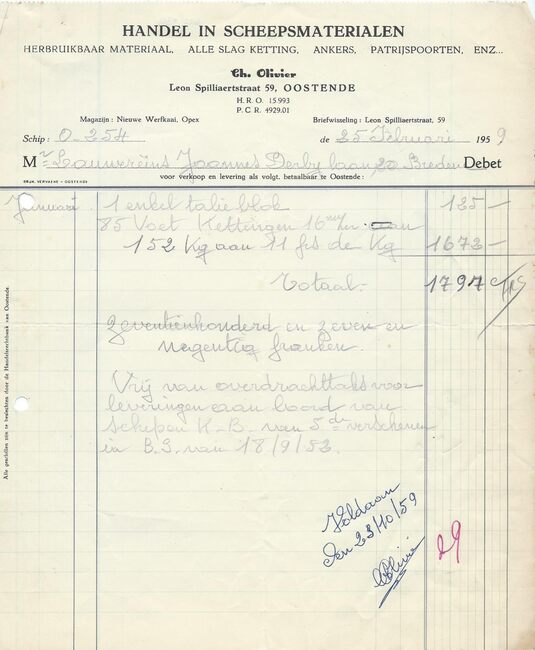 HANDEL IN SCHEEPSMATERIALEN
HERBRUIKBAAR MATERIAAL, ALLE SLAG KETTING, ANKERS, PATRIJSPOORTEN, ENZ...
Ch. Olivier
Leon Spilliaertstraat 59, OOSTENDE
H.R.O. 15.993
P.C.R. 4929.01
Magazijn : Nieuwe Werfkaai, Opex
Briefwisseling : Leon Spilliaertstraat, 59
Schip : O-254 de 25 Februari 1959
Mr Lauwereins Joannes Derby laan 20 Bredene Debet
DRUK. VERHAEGHE - OOSTENDE
voor verkoop en levering als volgt, betaalbaar te Oostende :
Januari 1 enkel talieblok 125 —
85 Voet Kettingen 16 m/m aan
152 Kg aan 11 frs de Kg 1672 —
Totaal - 1797
zeventienhonderd en zeven en
negentig franken.
Vrij van overdrachttaks voor
leveringen aan boord van
schepen K-B- van 5de verschenen
in B.S. van 18/9/53.
Voldaan
den 23/10/59
Olivier
29
Alle geschillen zijn te beslechten door de Handelsrechtbank van Oostende